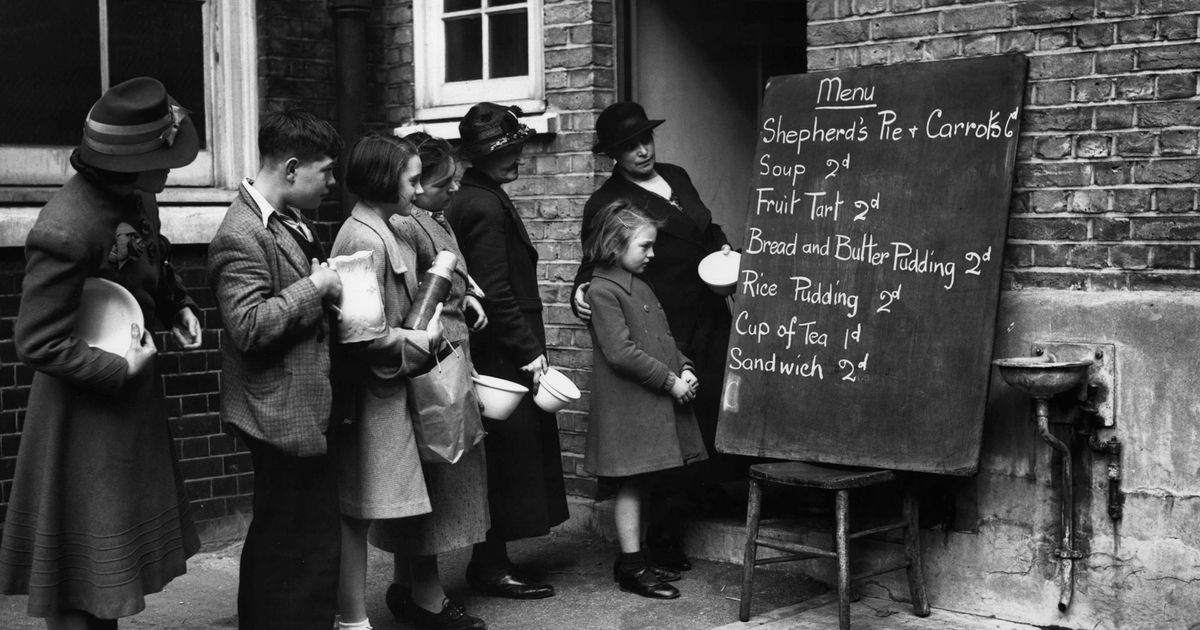 Menu
Shepherd's Pie + Carrots 6d
Soup 2d
Fruit Tart 2d
Bread and Butter Pudding 2d
Rice Pudding 2d
Cup of Tea 1d
Sandwich 2d